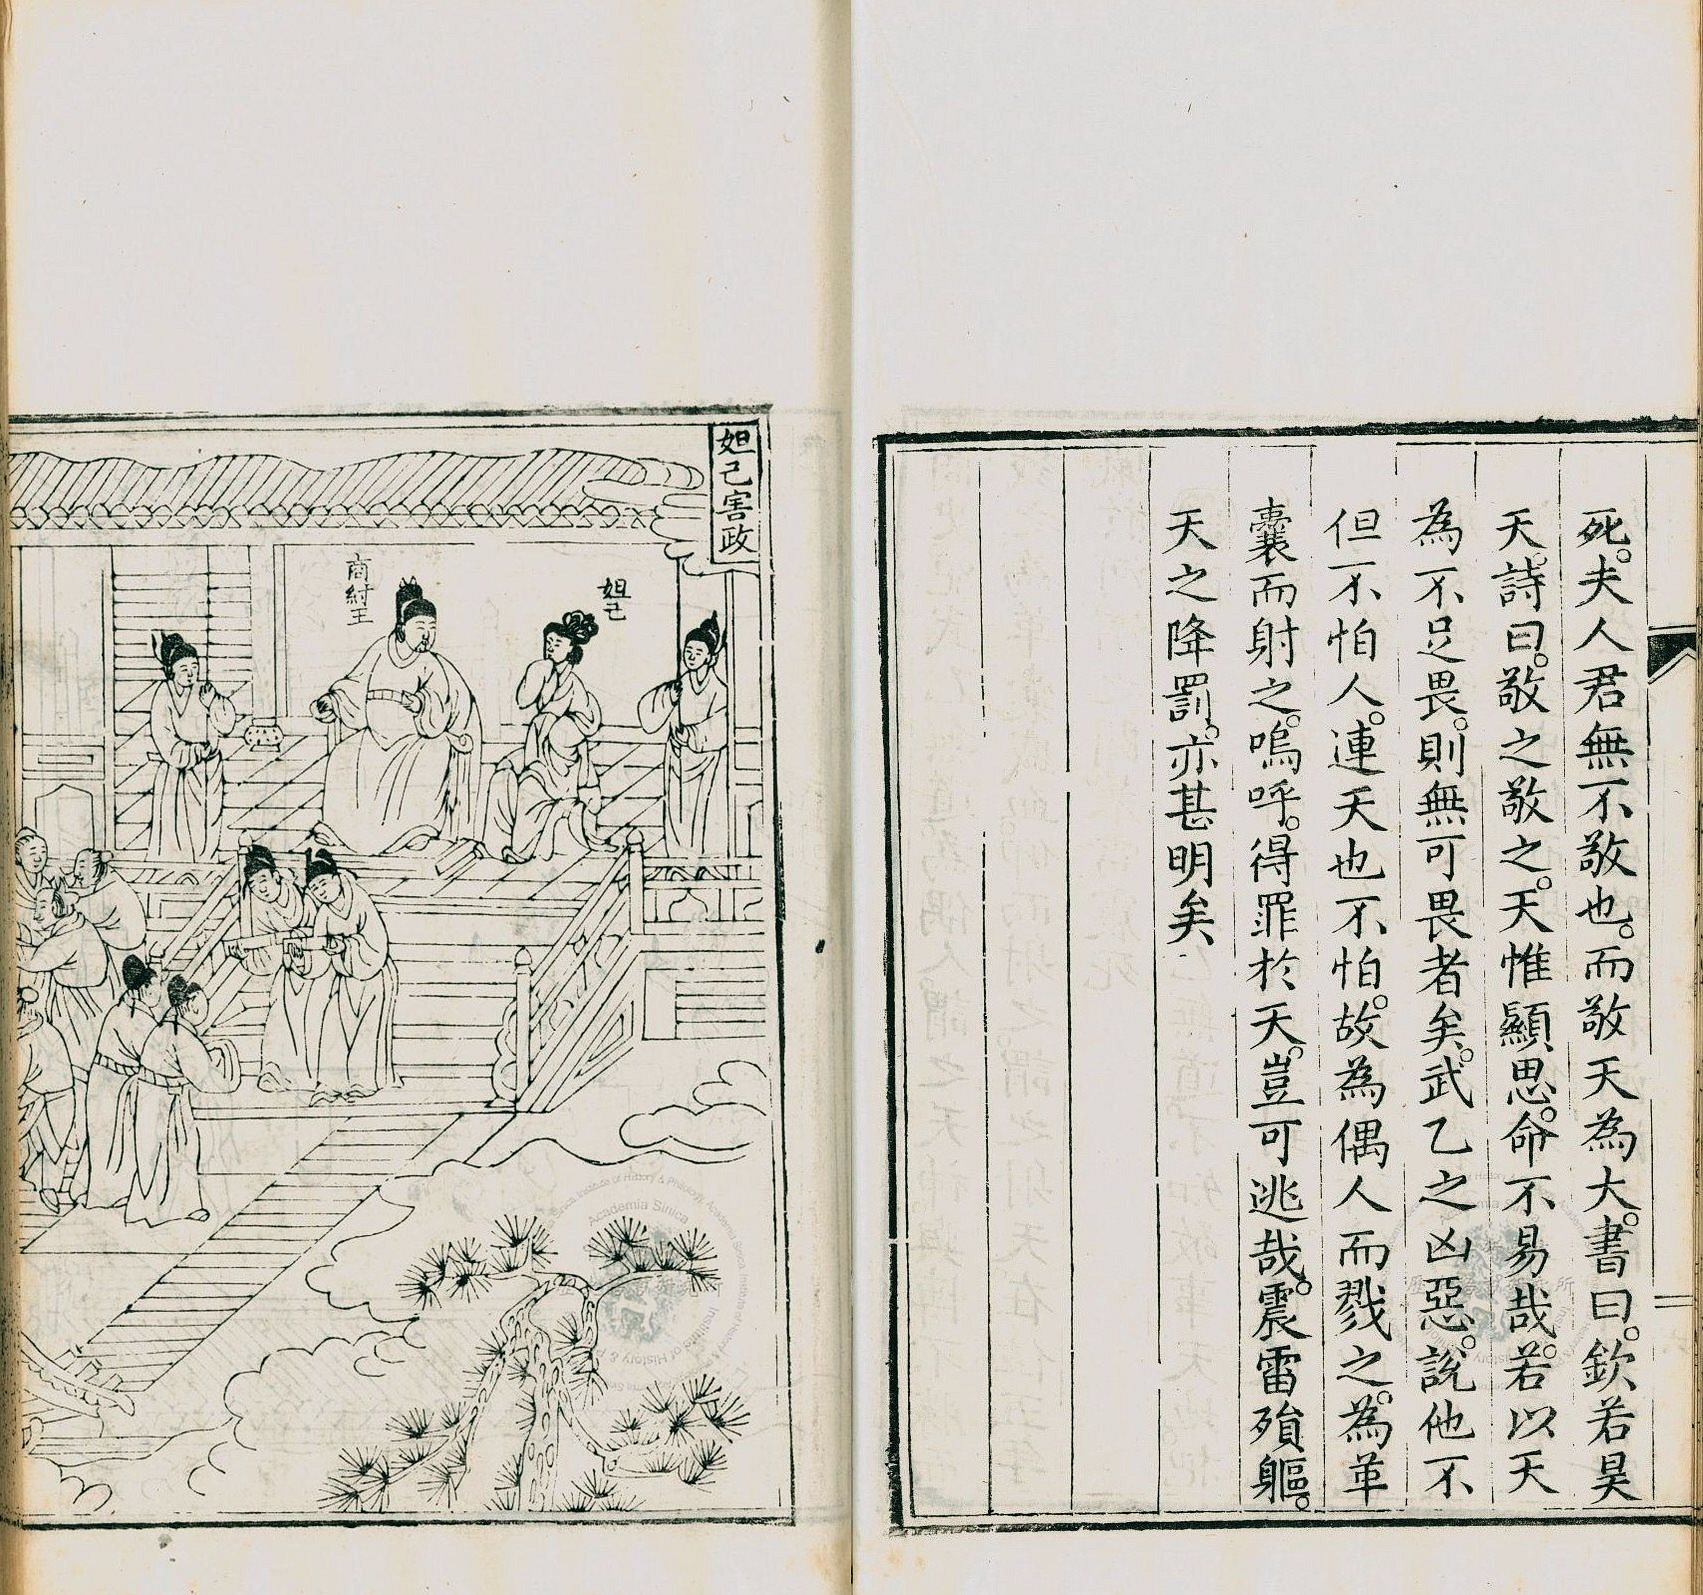 死。夫人君無不敬也。而敬天為大。書曰。欽若昊
天。詩曰。敬之敬之。天惟顯思。命不易哉。若以天
為不足畏。則無可畏者矣。武乙之凶惡。說他不
但不怕人。連天也不怕。故為偶人而戮之。為革
囊而射之。嗚呼。得罪於天。豈可逃哉。震雷殞軀。
天之降罰。亦甚明矣
妲己害政
妲己
商紂王
Academia Sinica
Institute of History & Philology